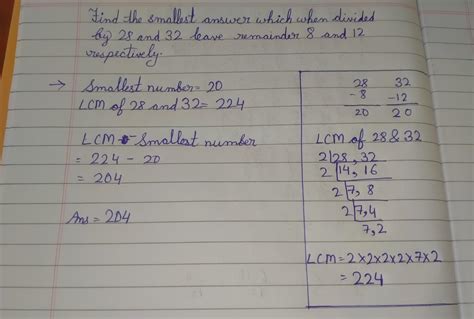 Find the smallest answer which when divided
by 28 and 32 leave remainder 8 and 12
respectively.
→ Smallest number = 20
LCM of 28 and 32 = 224
LCM - Smallest number
= 224 - 20
= 204
Ans = 204
28 32
-8 -12
20 20
LCM of 28 & 32
2 28, 32
2 14, 16
2 7, 8
2 7,4
7,2
LCM = 2×2×2×2×7×2
= 224